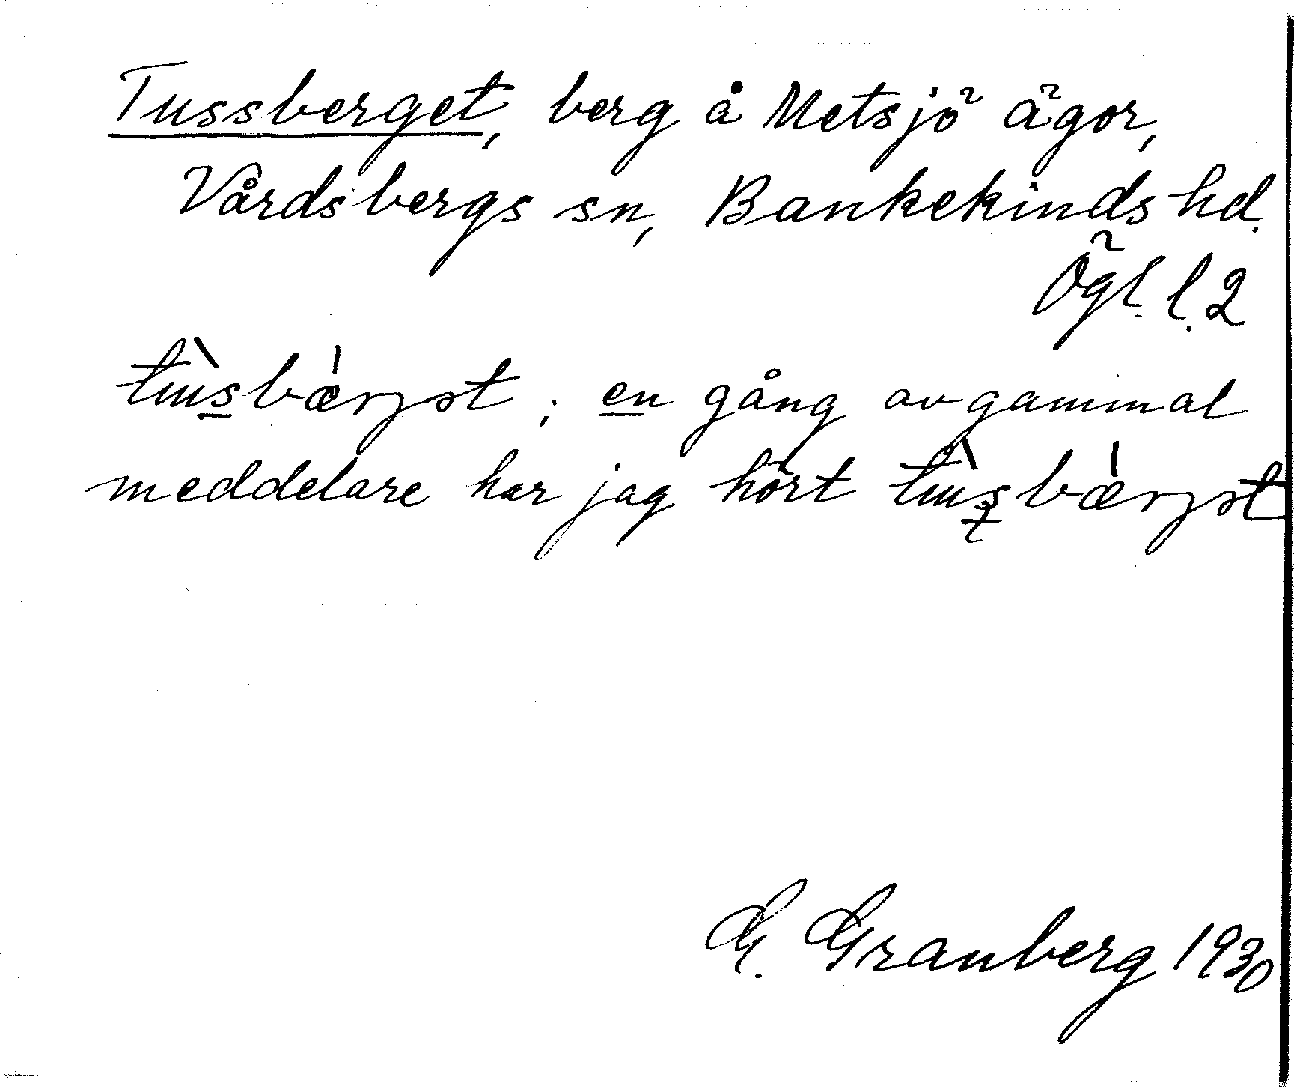 Tussberget, berg å Metsjö ägor,
Vårdsbergs sn, Bankekinds hd.
Ögl. l. 2
; en gång av gammal
meddelare har jag hört
G. Granberg 1930